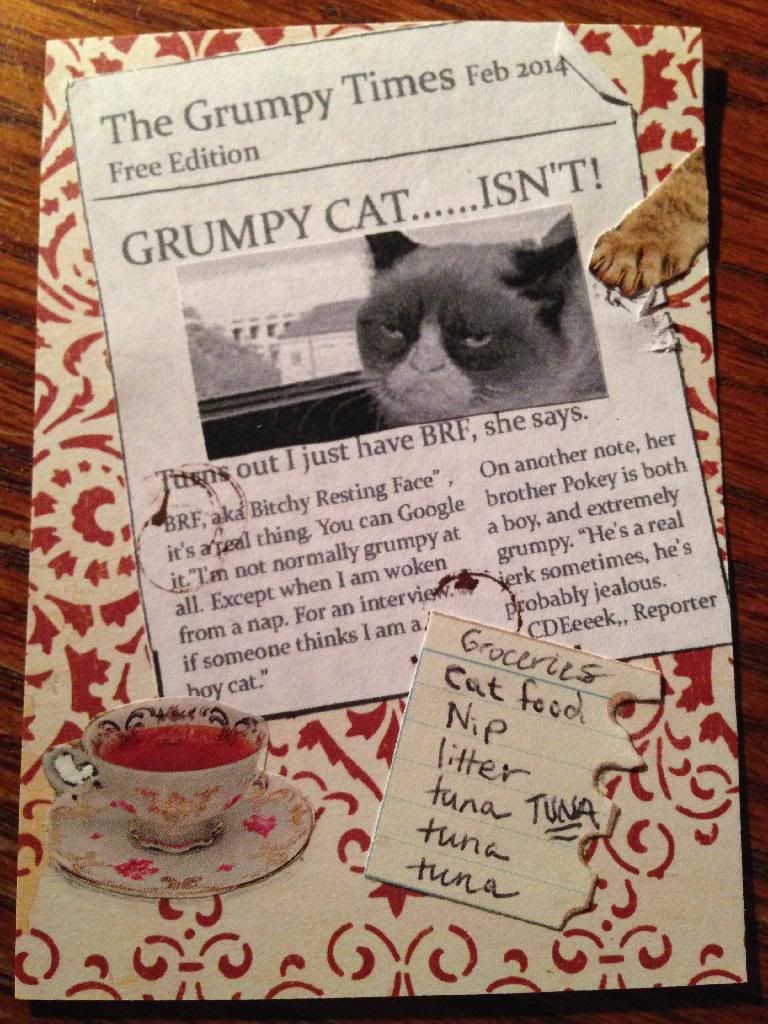 The Grumpy Times Feb 2014
Free Edition
GRUMPY CAT......ISN'T!
Turns out I just have BRF, she says.
BRF, aka Bitchy Resting Face",
it's a real thing. You can Google
it."I'm not normally grumpy at
all. Except when I am woken
from a nap. For an interview.
if someone thinks I am a
boy cat."
On another note, her
brother Pokey is both
a boy, and extremely
grumpy. "He's a real
jerk sometimes, he's
probably jealous.
CDEeeek,, Reporter
Groceries
cat food
Nip
litter
tuna TUNA
tuna
tuna